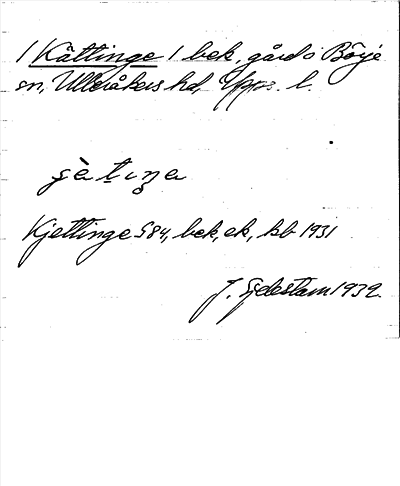 / Kättinge / bek, gård i Börje
sn, Ulleråkers hd, Upps. l.
Kjettinge S 84, bek, ek, kb 1931
J. Sjdestam 1932.